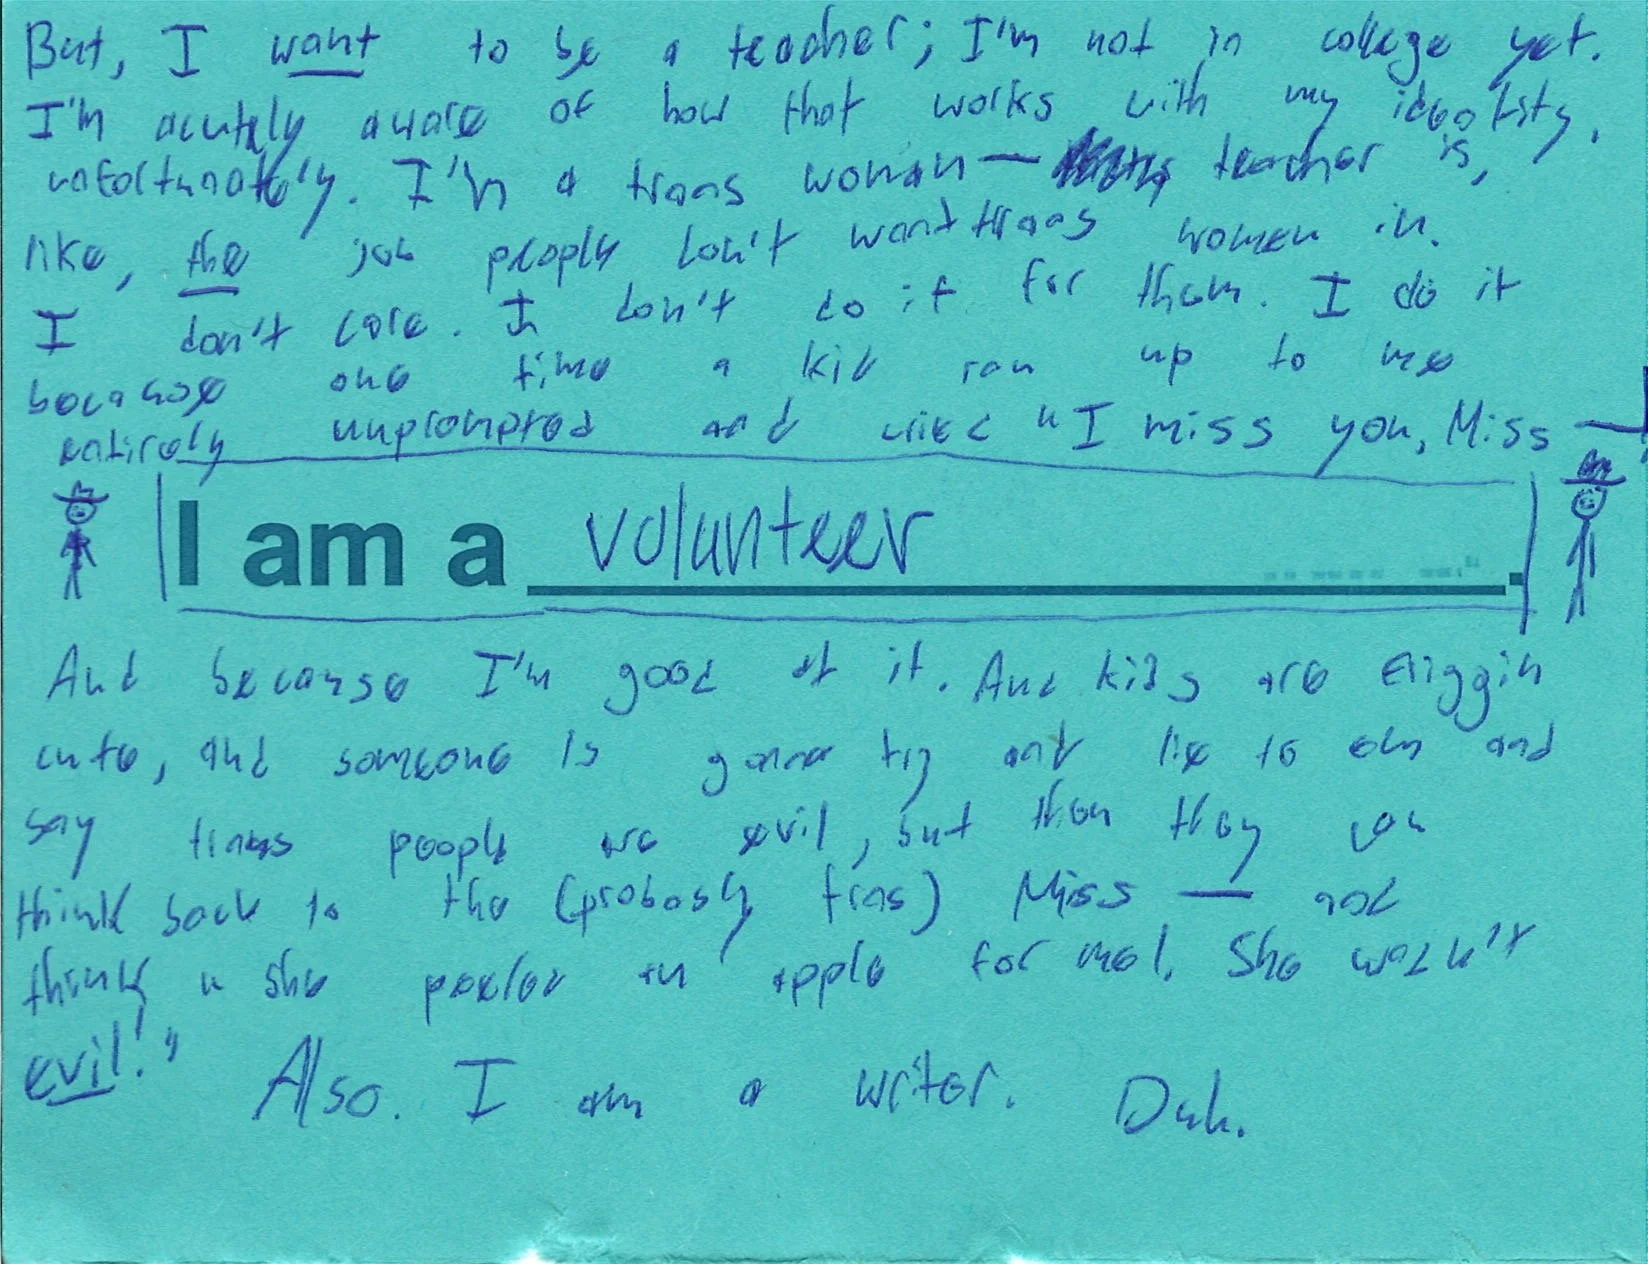 But, I want to be a teacher; I'm not in college yet.
I'm acutely aware of how that works with my identity,
unfortunately. I'm a trans woman — teacher is,
like, the job people don't want trans women in.
I don't care. I don't do it for them. I do it
because one time a kid ran up to me
entirely unprompted and cried "I miss you, Miss —
I am a volunteer.
And because I'm good at it. And kids are friggin
cute, and someone is gonna try and lie to em and
say trans people are evil, but then they can
think back to the (probably trans) Miss — and
think "She peeled an apple for me!. She wasn't
evil!" Also. I am a writer. Duh.